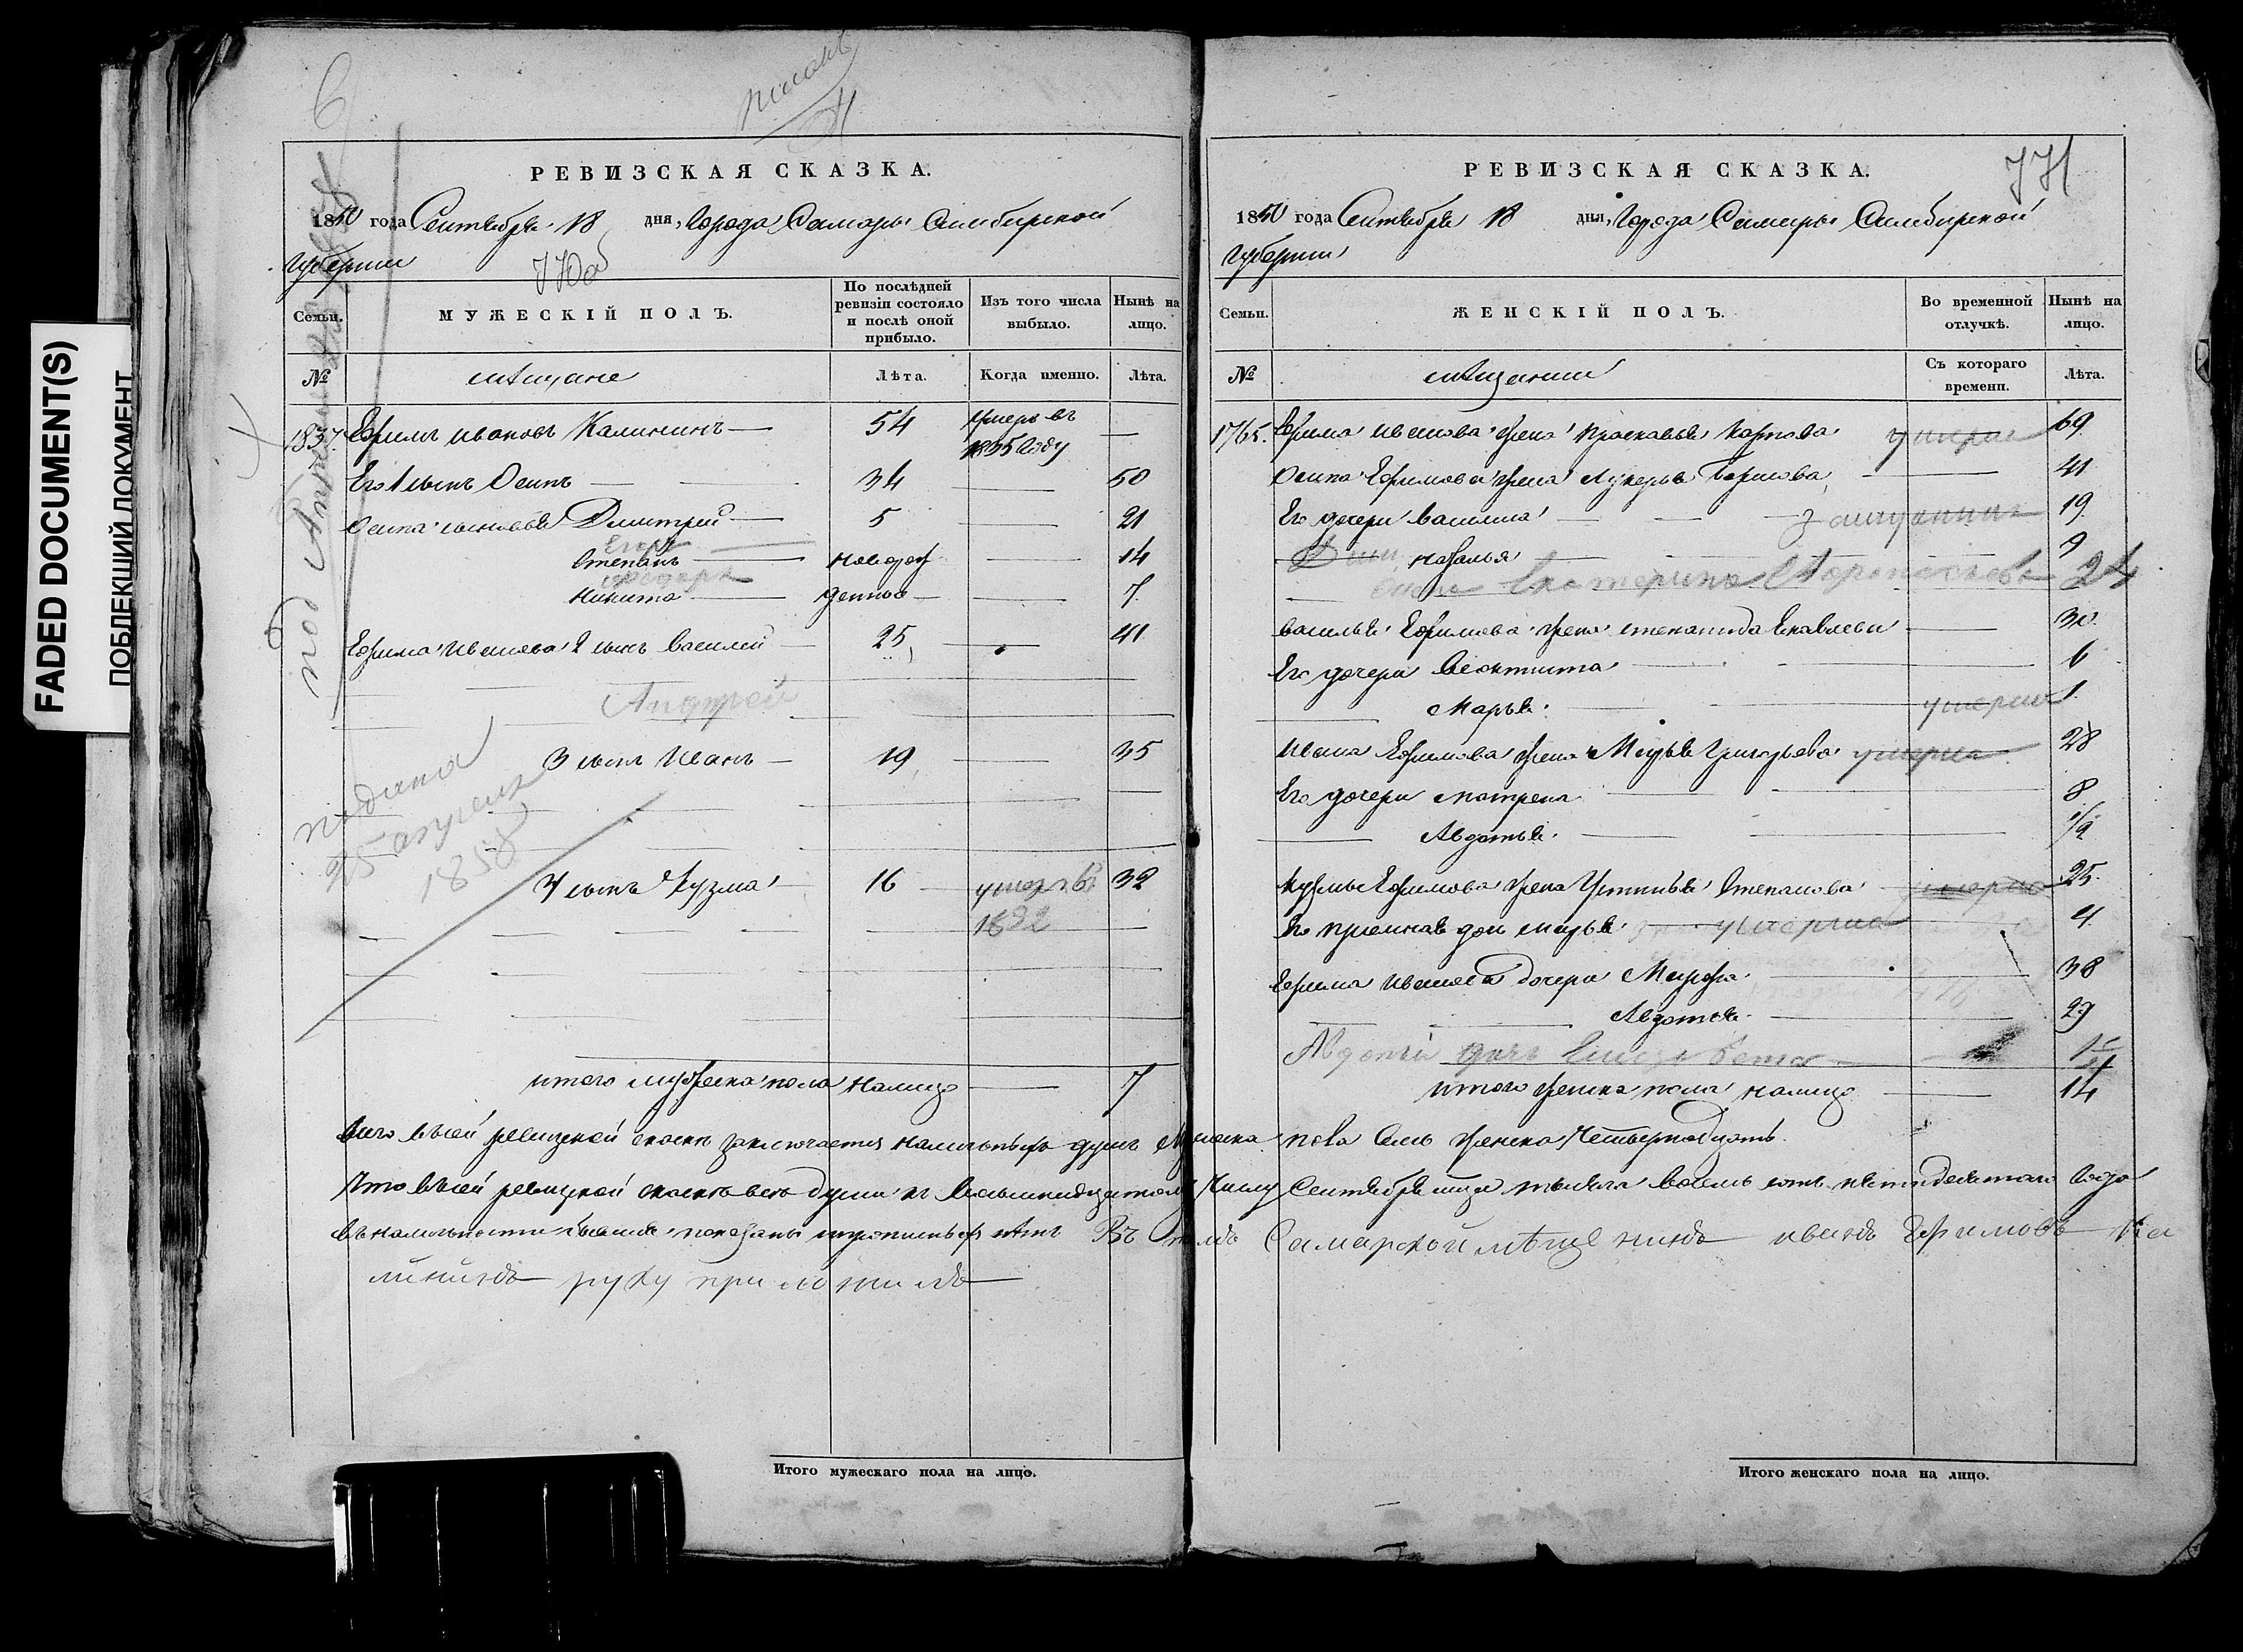 FADED DOCUMENT(S)
ПОБЛЕКШИЙ ДОКУМЕНТ
6
РЕВИЗСКАЯ СКАЗКА.
1850 года Сентября 18 дня, Города Самары Симбирской
Губернии
770 об
Семьи.
МУЖЕСКІЙ ПОЛЪ.
По послѣдней ревизіи состояло и послѣ оной прибыло.
Изъ того числа выбыло.
Нынѣ на лицо.
№
мѣщане
Лѣта.
Когда именно.
Лѣта.
1837. Ефимъ Ивановъ Калининъ — 54 умеръ въ 1835 году —
Его 1 сынъ Осипъ — 34 — 50
Осипа сыновья Дмитрей — 5 — 21
Егоръ
Степанъ — новорож — 14
Федоръ
Никита — денное — 7
Ефима Иванова 2 сынъ Василей — 25 — 41
Андрей
3 сынъ Иванъ — 19 — 35
подана
25 апреля
1858
4 сынъ Кузма — 16 — умеръ въ 32
1852
итого мужеска пола налицо — 7
РЕВИЗСКАЯ СКАЗКА.
771
1850 года Сентября 18 дня, Города Самары Симбирской
Губернии
Семьи.
ЖЕНСКІЙ ПОЛЪ.
Во временной отлучкѣ.
Нынѣ на лицо.
№
мѣщанки
Съ котораго времени.
Лѣта.
1765. Ефима Иванова жена Прасковья Карпова умерла 69
Осипа Ефимова жена Лукерья Борисова — 41
Его дочери Василиса — замужнии 19
Наталья — 9
Екатерина 24
Василья Ефимова жена Степанида Яковлева — 30
Его дочери Феоктиста — 6
Марья — умерла 1
Ивана Ефимова жена Марья Григорьева умерла 28
Его дочери Матрена — 8
Авдотья — 1/2
Кузмы Ефимова жена Устинья Степанова умерла 25
Его приемная доч Марья умерла 4
Ефима Иванова дочери Марфа — 38
Авдотья — 29
Авдотьи дочь Елисавета
итого женска пола налицо — 14
Всего въ сей ревизской сказке заключается наличныхъ душъ Мужеска пола Семь женска Четырнадцать.
Что въ сей ревизской сказке все души къ восьмнадцатому Числу Сентября мца тысяча восемь сотъ пятидесятаго Года
въ наличности бывшия показаны и пропиныхъ нѣтъ Въ томъ Самарской мѣщенинъ Иванъ Ефимовъ Ка
лининъ руку приложилъ
Итого мужескаго пола на лицо.
Итого женскаго пола на лицо.